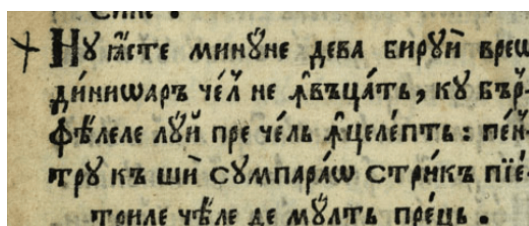 Ну ꙗ҆сте минꙋ́не дева бирꙋи́ врєѡ
ди́ниѡаръ че́л не ꙟ҆въца́ть, кꙋ бър-
фѣ́леле лꙋ́й пре че́ль ꙟ҆целе́пть : пе́н-
трꙋ къ ши́ сꙋмпара́ѡ стри́къ пїе́-
триле чѣ́ле де мꙋ́лть пре́ць .